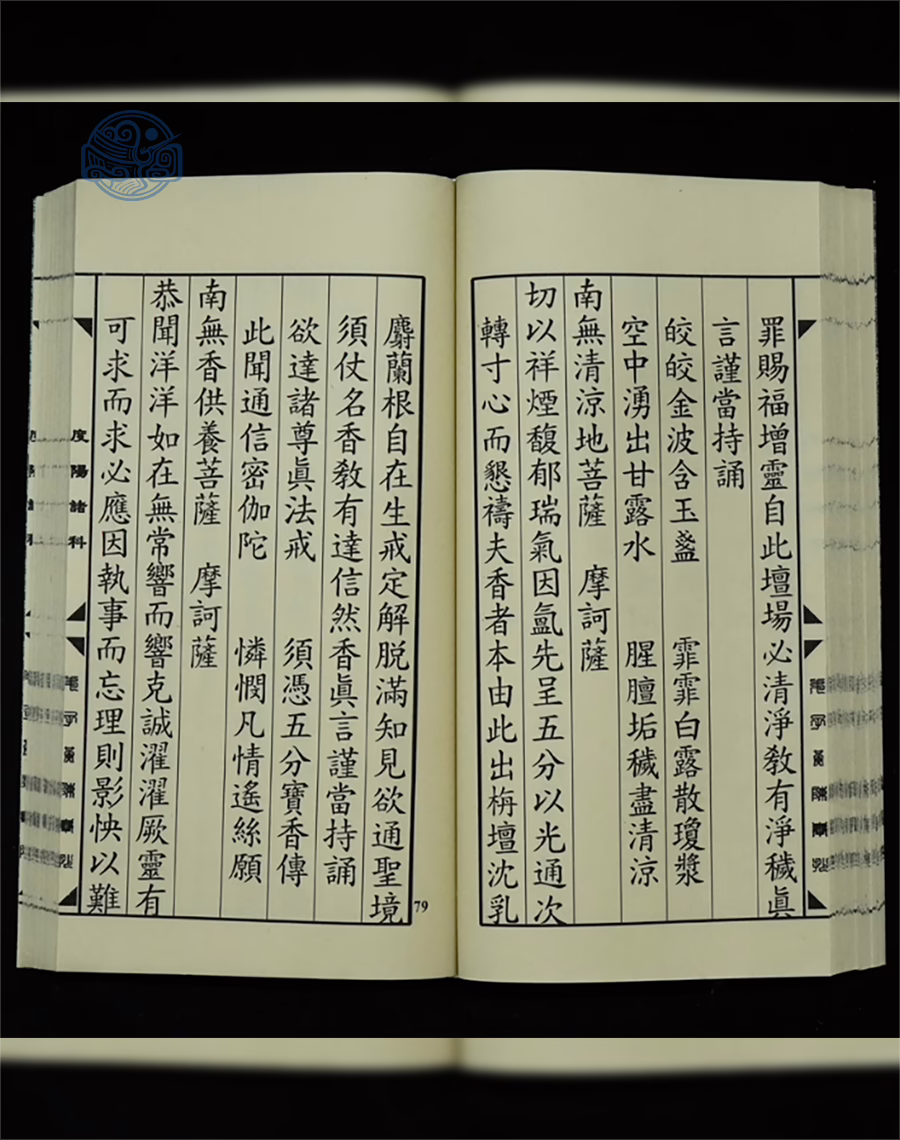 罪賜福增靈自此壇場必清淨教有淨穢眞
言謹當持誦
皎皎金波含玉盞 霏霏白露散瓊漿
空中湧出甘露水 腥膻垢穢盡清涼
南無清涼地菩薩 摩訶薩
切以祥煙馥郁瑞氣因氳先呈五分以光通次
轉寸心而懇禱夫香者本由此出栴壇沈乳
麝蘭根自在生戒定解脱滿知見欲通聖境
須仗名香教有達信然香眞言謹當持誦
欲達諸尊眞法戒 須憑五分寶香傳
此聞通信密伽陀 憐憫凡情遙絲願
南無香供養菩薩 摩訶薩
恭聞洋洋如在無常響而響克誠濯濯厥靈有
可求而求必應因執事而忘理則影怏以難
度陽諸科
79